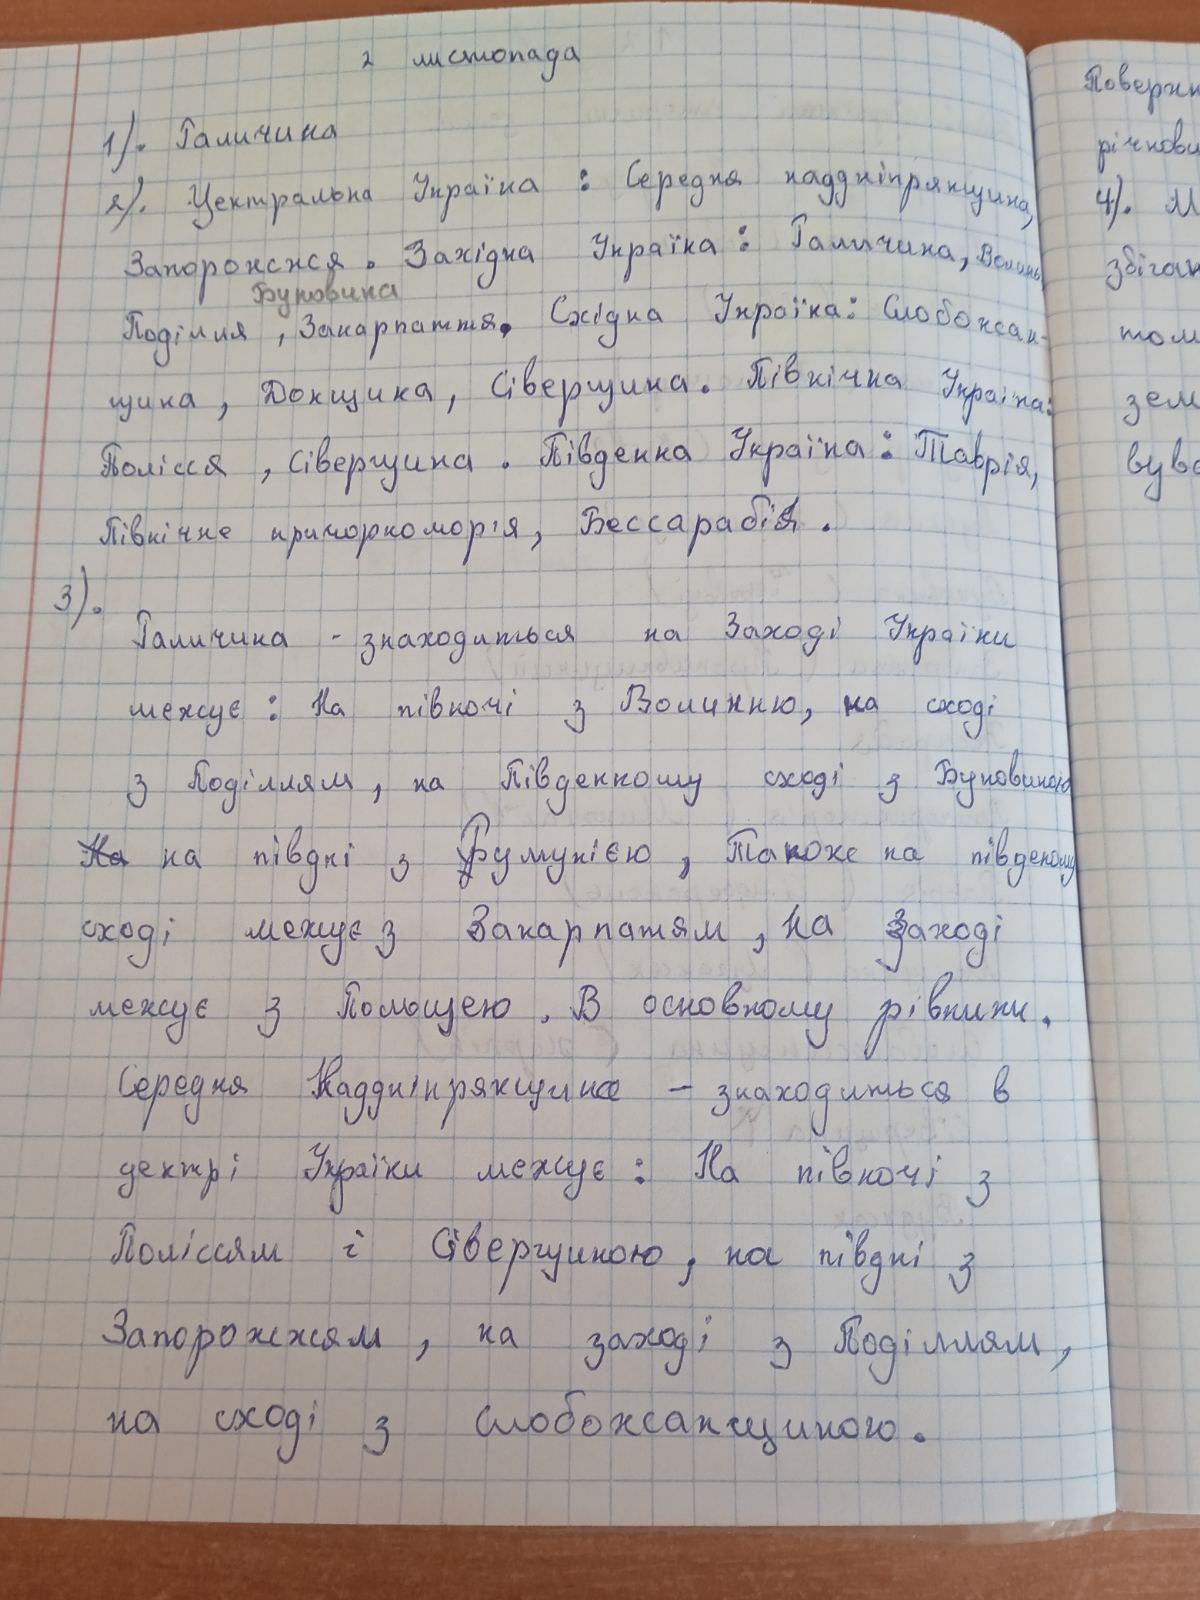 2 листопада
1). Галичина
2). Центральна Україна : Середня наддніпрянщина,
Запорожжя. Західна Україна : Галичина, Волинь
Буковина
Поділля, Закарпаття. Східна Україна: Слобожан-
щина, Донщина, Сіверщина. Північна Україна:
Полісся, Сіверщина. Південна Україна: Таврія,
Північне причорноморя, Бессарабія.
3).
Галичина - знаходиться на Заході України
межує : На півночі з Волинню, на сході
з Поділлям, на Південному сході з Буковиною
На на півдні з Румунією, Також на південому
сході межує з Закарпатям, на заході
межує з Польщею. В основному рівнини.
Середня Наддніпрянщина - знаходиться в
центрі України межує : На півночі з
Поліссям і Сіверщиною, на півдні з
Запорожжям, на заході з Поділлям,
на сході з слобожанщиною.
Поверхн
річкови
4). М
збіган
том
зем
вуве